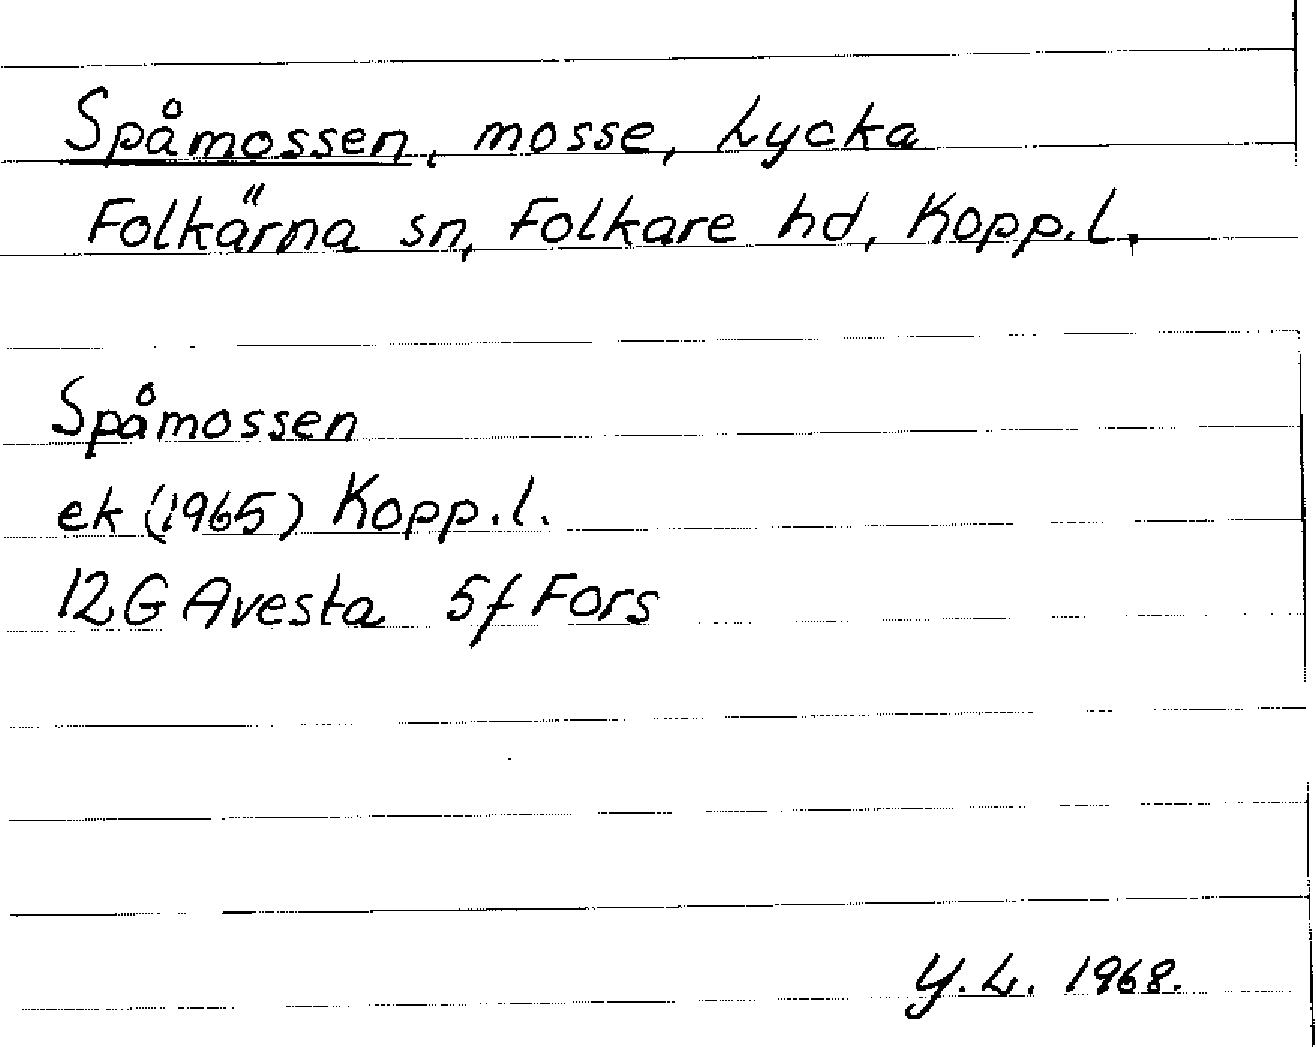 Spåmossen, mosse, Lycka
Folkärna sn, Folkare hd, Kopp.l.
Spåmossen
ek (1965) Kopp.l.
12G Avesta 5f Fors
Y.L. 1968.